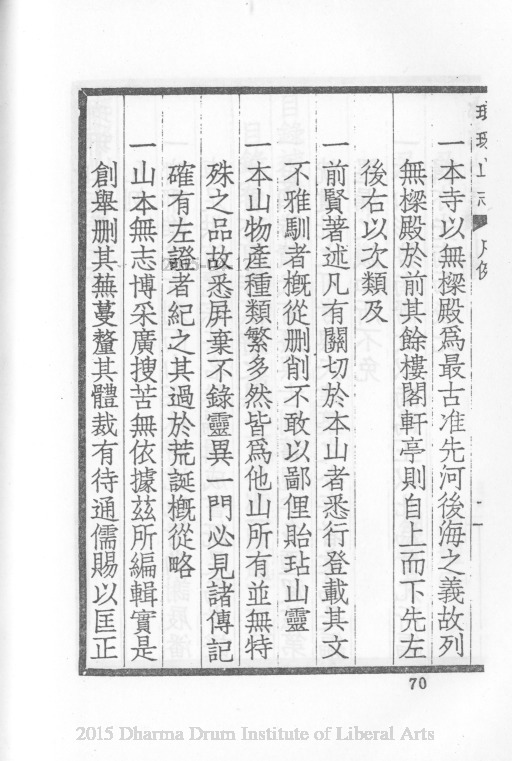 琅琊山志 凡例 二
一本寺以無樑殿爲最古准先河後海之義故列
無樑殿於前其餘樓閣軒亭則自上而下先左
後右以次類及
一前賢著述凡有關切於本山者悉行登載其文
不雅馴者槪從删削不敢以鄙俚貽玷山靈
一本山物產種類繁多然皆爲他山所有並無特
殊之品故悉屏棄不錄靈異一門必見諸傳記
確有左證者紀之其過於荒誕槪從略
一山本無志博采廣搜苦無依據茲所編輯實是
創舉删其蕪蔓釐其體裁有待通儒賜以匡正
70
2015 Dharma Drum Institute of Liberal Arts